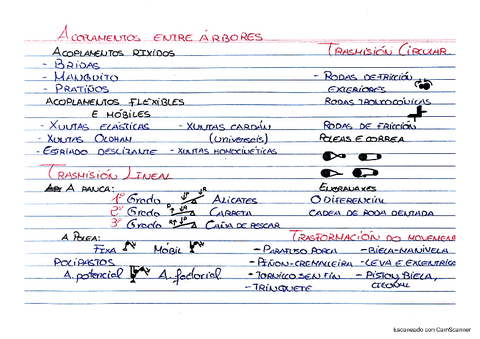 ACOPLAMENTOS ENTRE ÁRBORES
ACOPLAMENTOS RIXIDOS
- BRIDAS
- MANGUITO
- PRATIÑOS
ACOPLAMENTOS FLEXIBLES
E MÓBILES
- XUNTAS ELÁSTICAS - XUNTAS CARDÁN
- XUNTAS OLDHAN (UNIVERSAIS)
- ESTRIADO DESLIZANTE - XUNTAS HOMOCINÉTICAS
TRASMISIÓN CIRCULAR
- RODAS DE FRICCIÓN
EXTERIORES
RODAS TRONCOCÓNICAS
RODAS DE FRICCIÓN
POLEAS E CORREA
TRASMISIÓN LINEAL
A PANCA:
1º Grado Alicates
2º Grado CARRETA
3º Grado CAÑA DE PESCAR
ENGRANAXES
O DIFERENCIAL
CADEA DE RODA DENTADA
A POLEA:
FIXA MÓBIL
POLIPASTOS
A. potencial A. factorial
TRASFORMACIÓN DO MOVEMENTO
- PARAFUSO PORCA - BIELA-MANIVELA
- PIÑÓN-CREMALLEIRA - LEVA E EXCÉNTRICA
- TORNILLO SEN FIN - PISTÓN, BIELA,
- TRINQUETE
Escaneado con CamScanner